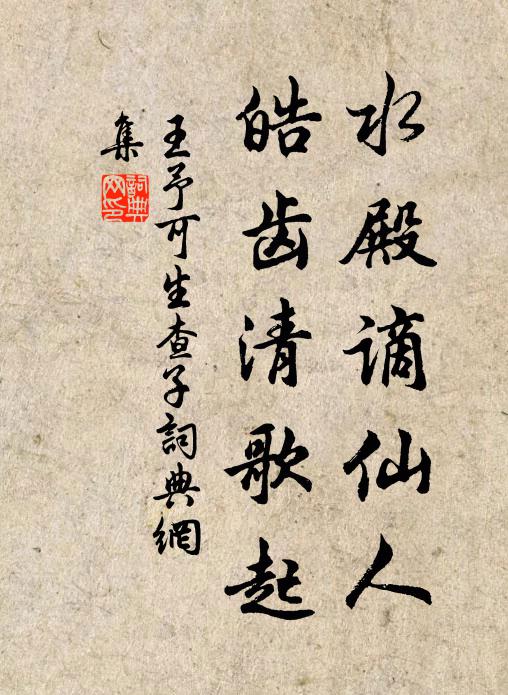 水殿谪仙人
皓齿清歌起
王予可生查子詞典網
集
詞典
网印